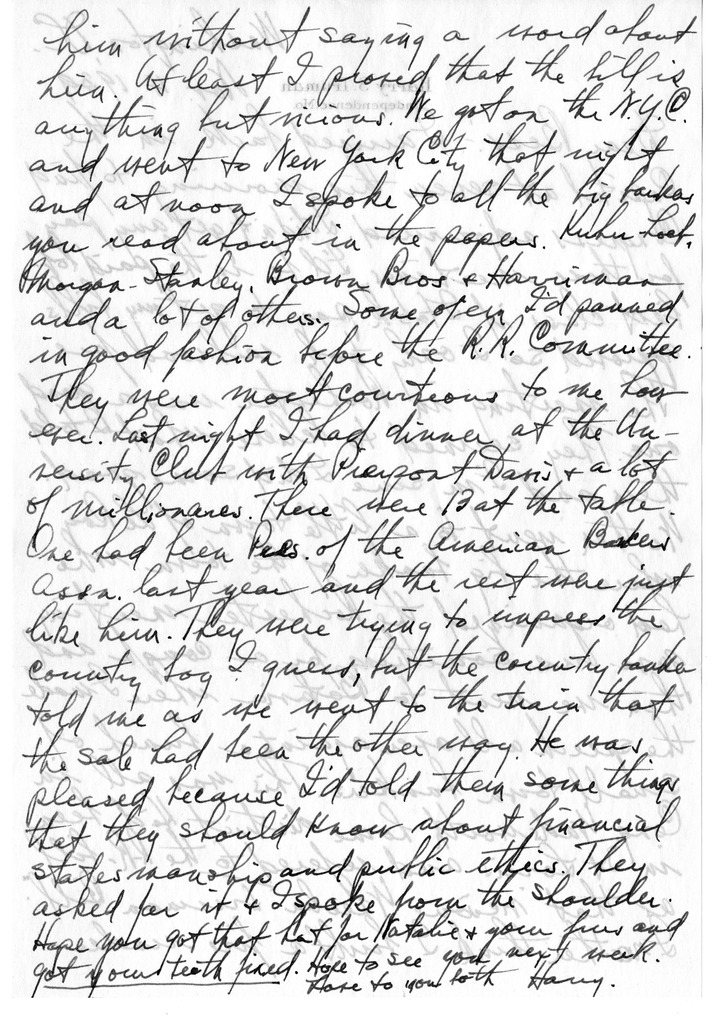 him without saying a word about
him. At least I proved that the bill is
anything but vicious. We got on the N.Y.C.
and went to New York City that night
and at noon I spoke to all the big bankers
you read about in the papers. Kuhn-Loeb,
Morgan-Stanley, Brown Bros & Harriman
and a lot of others. Some of em I'd panned
in good fashion before the R.R. Committee.
They were most courteous to me how
ever. Last night I had dinner at the Un-
versity Club with Pierpont Davis & a lot
of millionaires. There were 13 at the table.
One had been Pres. of the American Bankers
Assn. last year and the rest were just
like him. They were trying to impress the
country boy I guess, but the country banker
told me as we went to the train that
the sale had been the other way. He was
pleased because I'd told them some things
that they should know about financial
statesmanship and public ethics. They
asked for it & I spoke from the shoulder.
Hope you got that hat for Natalie & your furs and
got your teeth fixed. Hope to see you next week.
Love to you both Harry.